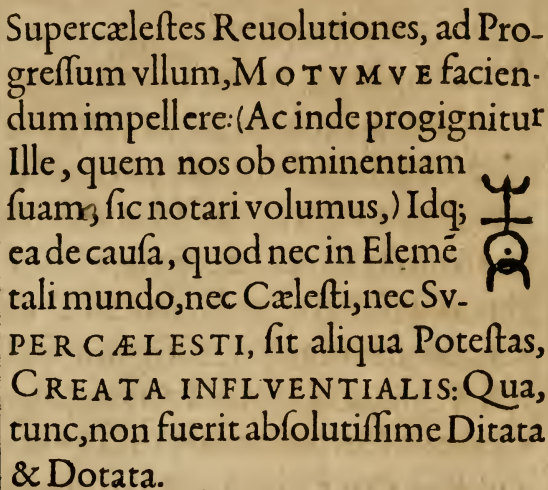 Supercæleſtes Reuolutiones, ad Pro-
greſſum vllum, MOTVMVE facien-
dum impellere: (Ac inde progignitur
Ille, quem nos ob eminentiam
ſuam, ſic notari volumus,) Idq;
ea de cauſa, quod nec in Elemẽ
tali mundo, nec Cæleſti, nec SV-
PERCÆLESTI, ſit aliqua Poteſtas,
CREATA INFLVENTIALIS: Qua,
tunc, non fuerit abſolutiſſime Ditata
& Dotata.